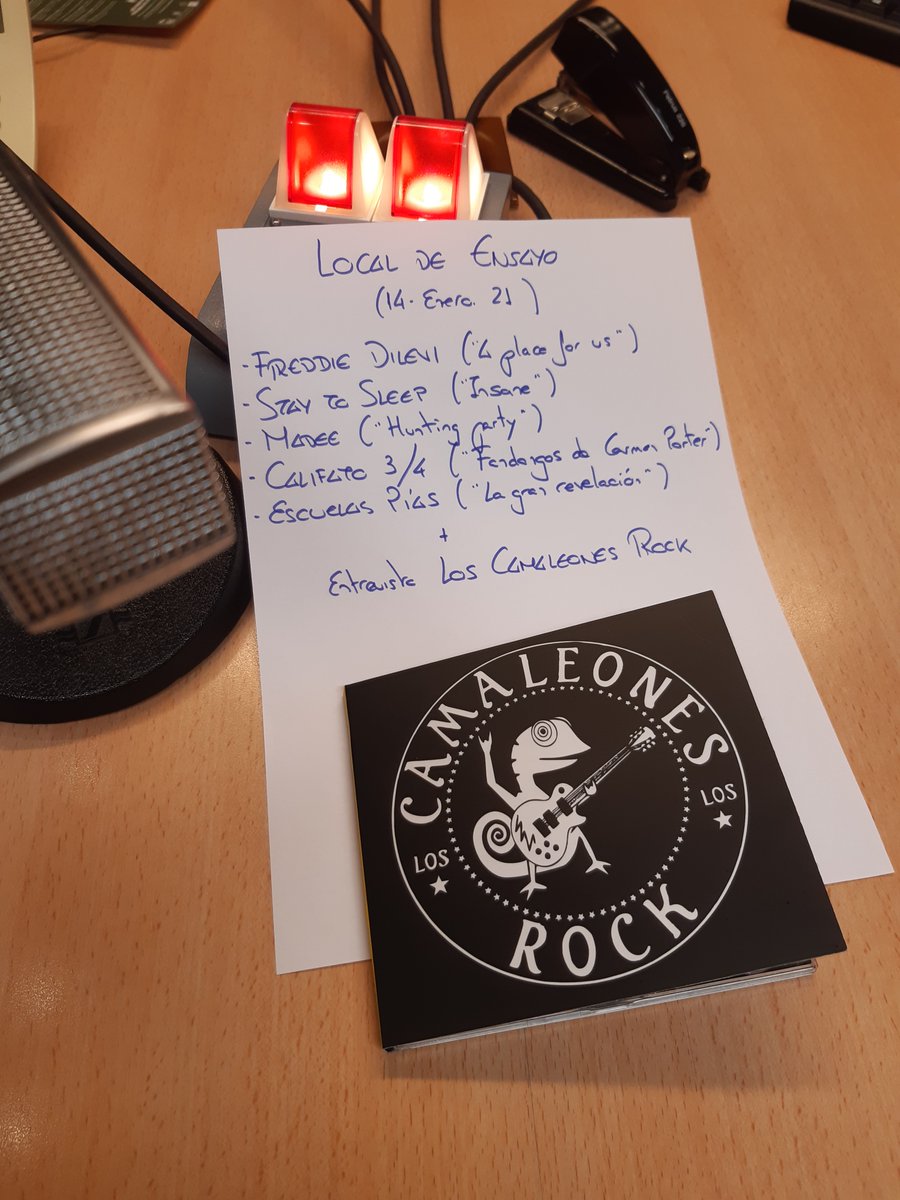 LOCAL DE ENSAYO
(14. Enero. 21)
- FREDDIE DILEVI ("A place for us")
- STAY TO SLEEP ("Insane")
- MADEE ("Hunting party")
- CALIFATO 3/4 ("Fandangos de Carmen Porter")
- ESCUELAS PÍAS ("La gran revelación")
+
Entrevista LOS CAMALEONES ROCK
CAMALEONES
LOS
LOS
ROCK